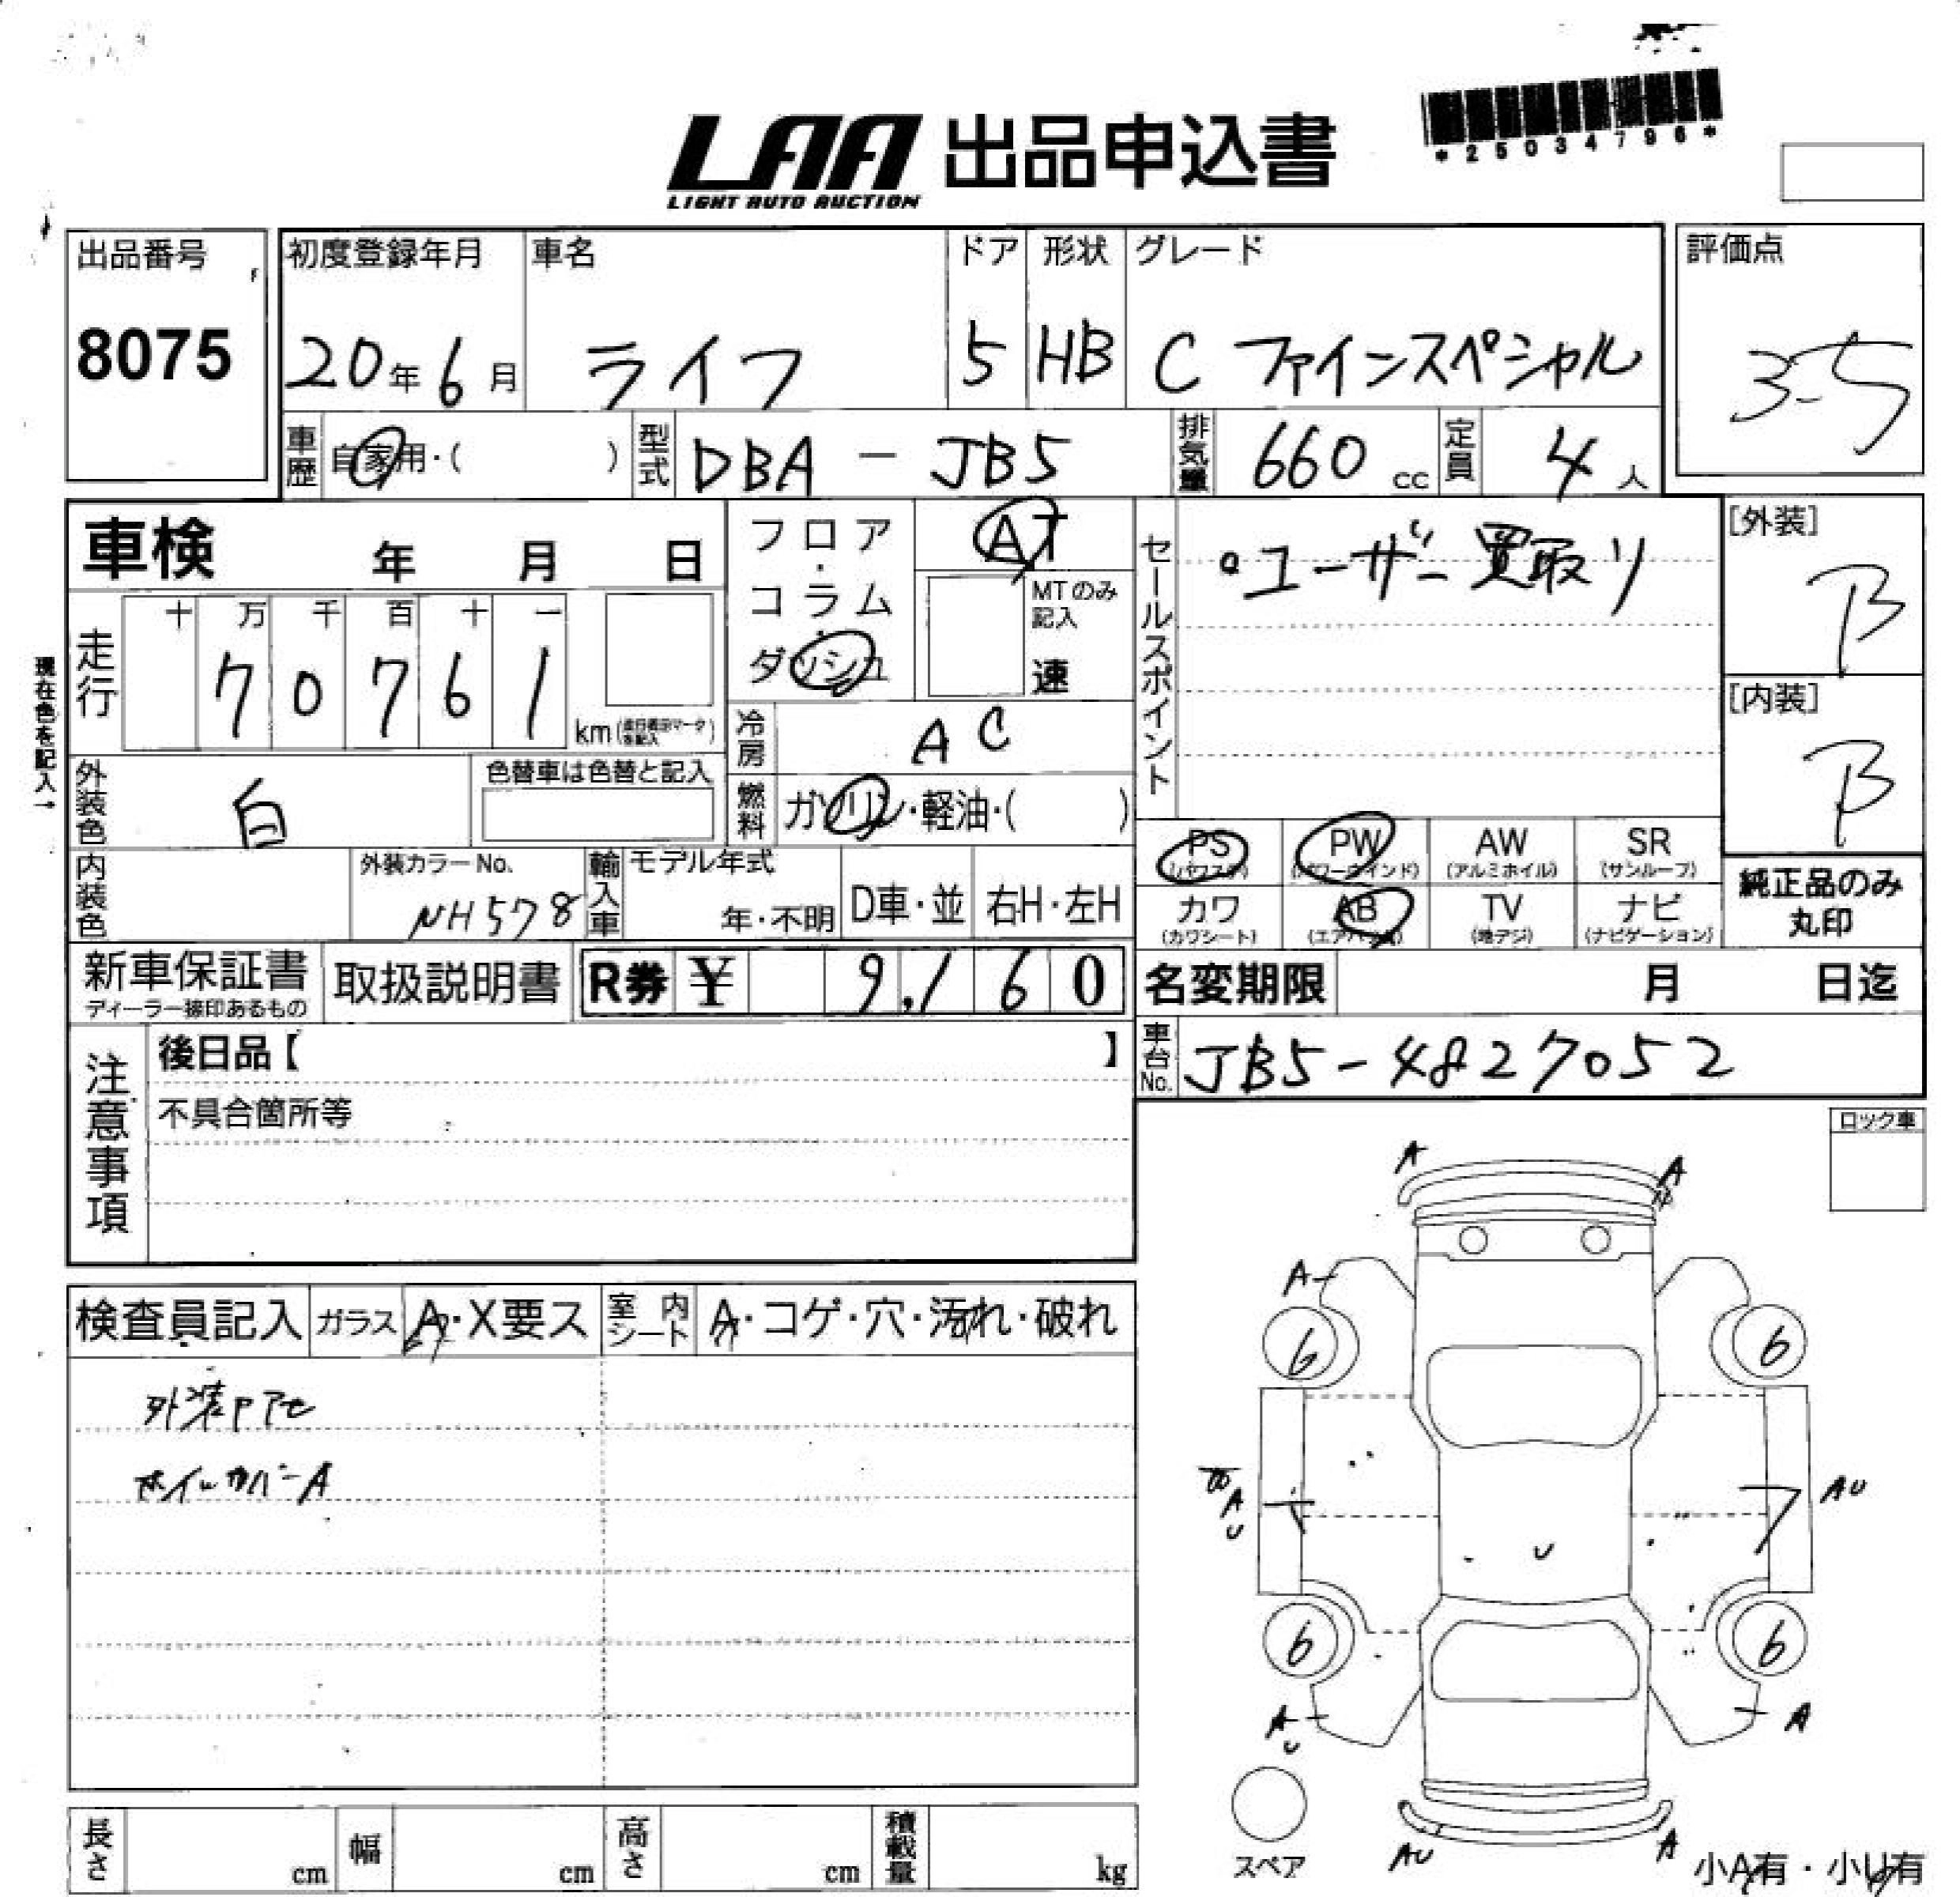 LAA 出品申込書
LIGHT AUTO AUCTION
*25034796*
出品番号
8075
初度登録年月
20年6月
車名
ライフ
ドア
5
形状
HB
グレード
C ファインスペシャル
評価点
3.5
車歴
自家用・( )
型式
DBA - JB5
排気量
660 cc
定員
4人
車検 年 月 日
フロア・コラム・ダッシュ
AT
MTのみ記入
速
セールスポイント
・ユーザー買取り
[外装]
B
[内装]
B
現在色を記入→
走行
十 万 千 百 十 一
7 0 7 6 1
km(走行表示マークを記入)
冷房
AC
外装色
白
色替車は色替と記入
燃料
ガソリン・軽油・( )
内装色
外装カラーNo.
NH578
輸入車
モデル年式
年・不明
D車・並
右H・左H
PS
(パワステ)
PW
(パワーウインド)
AW
(アルミホイル)
SR
(サンルーフ)
カワ
(カワシート)
AB
(エアバッグ)
TV
(地デジ)
ナビ
(ナビゲーション)
純正品のみ
丸印
新車保証書
ディーラー捺印あるもの
取扱説明書
R券 ¥ 9,160
名変期限 月 日迄
車台No.
JB5-4827052
注意事項
後日品【 】
不具合箇所等
ロック車
検査員記入
ガラス
A・X要ス
室内シート
A・コゲ・穴・汚れ・破れ
外装ヤアセ
ホイルカバーA
A A
A
6 6
A
U
AU
U
6 6
A
U
A
スペア
AU
A
小A有・小U有
長さ cm
幅 cm
高さ cm
積載量 kg